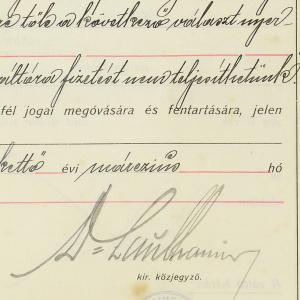 tőle a következő választ nyer-
fizetést nem teljesíthetünk.
fél jogai megóvására és fentartására, jelen
kettő évi márczius hó
kir. közjegyző.